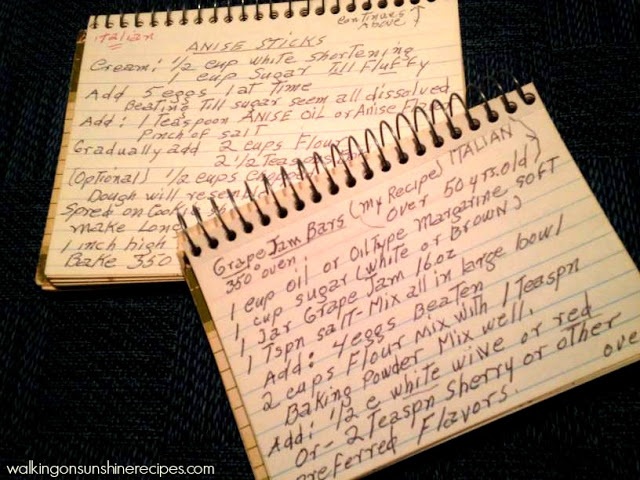 Italian
continues
Above
ANISE STICKS
Cream: 1/2 cup white shortening
1 cup Sugar Till Fluffy
Add 5 eggs 1 at Time
Beating Till sugar seem all dissolved
Add: 1 Teaspoon ANISE OIL or Anise Fla
Pinch of salt
Gradually add 2 cups Flour
2 1/2 Teas
(Optional) 1/2 cups
Dough will resem
Spred on Cookie
make Long
1 inch high
Bake 350
Grape Jam Bars (my Recipe) ITALIAN
350° oven: (over 50 yrs. old)
1 cup oil or Oil Type Margarine SOFT
1 cup sugar (white or Brown)
1 Jar Grape Jam 16 oz
1 Tspn salT - Mix all in large bowl
Add: 4 eggs Beaten
2 cups Flour Mix with 1 Teaspn
Baking Powder Mix well.
Add: 1/2 c white wine or red
Or - 2 Teaspn Sherry or other
preferred Flavors.
over
walkingonsunshinerecipes.com